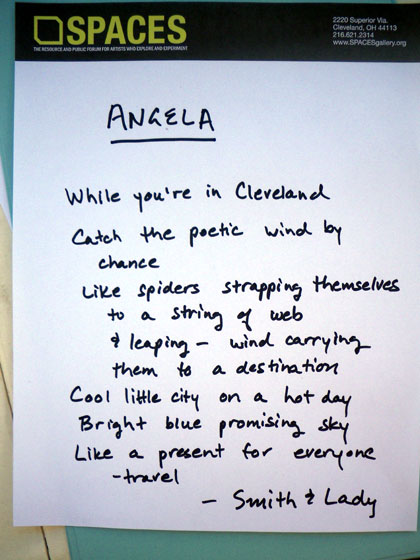 SPACES
THE RESOURCE AND PUBLIC FORUM FOR ARTISTS WHO EXPLORE AND EXPERIMENT
2220 Superior Via.
Cleveland, OH 44113
216.621.2314
www.SPACESgallery.org
ANGELA
While you're in Cleveland
Catch the poetic wind by
chance
Like spiders strapping themselves
to a string of web
& leaping – wind carrying
them to a destination
Cool little city on a hot day
Bright blue promising sky
Like a present for everyone
-travel
– Smith & Lady